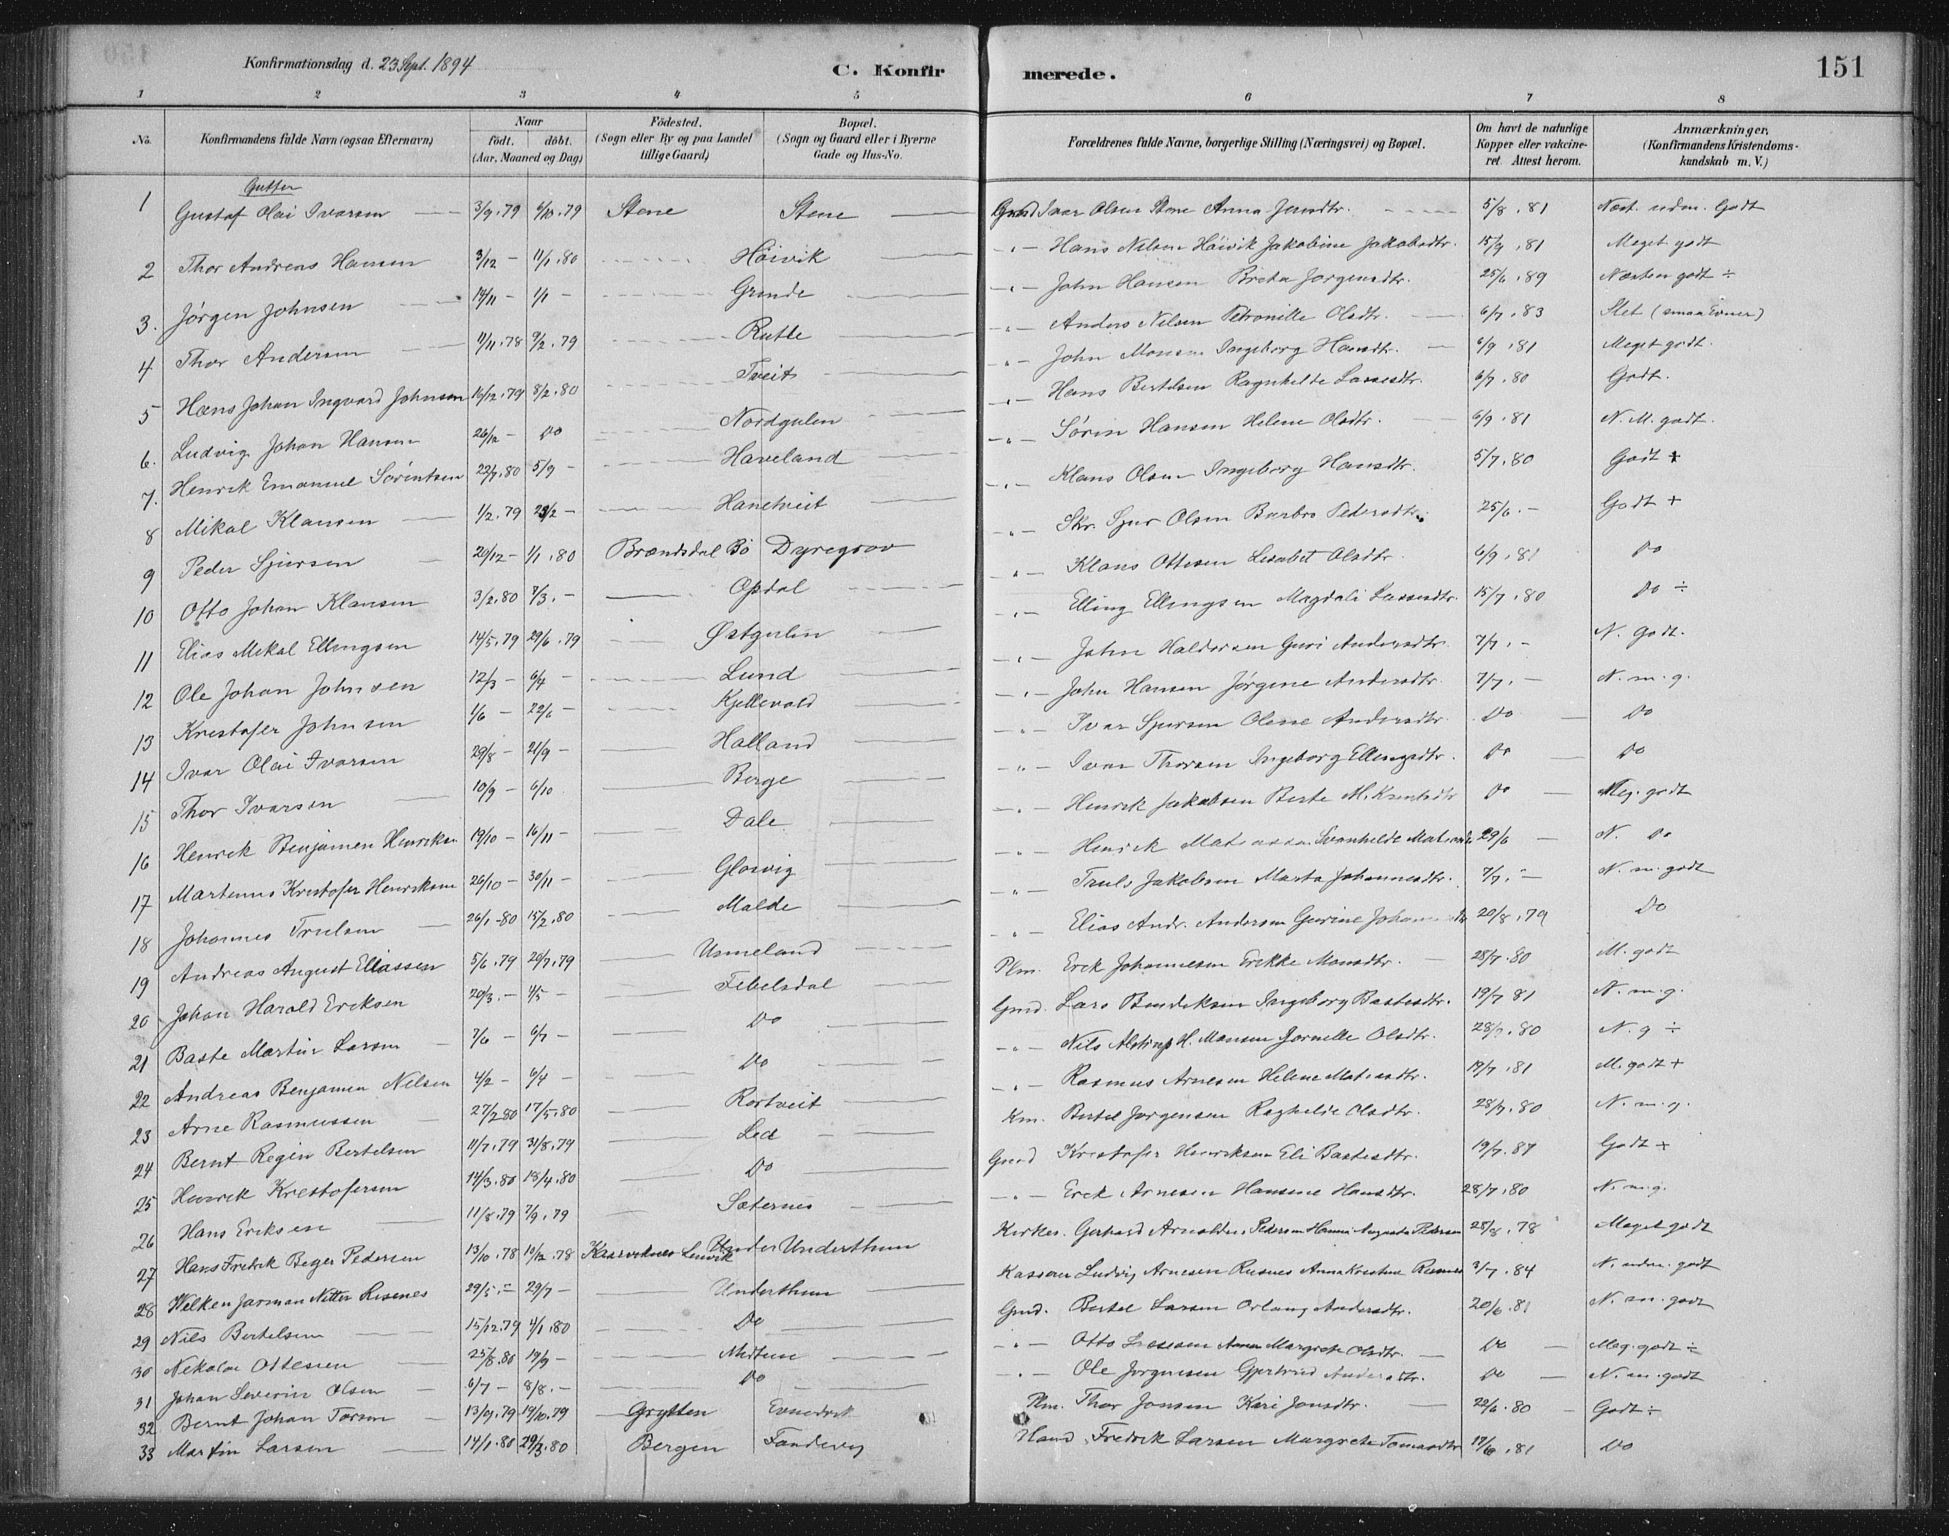 Konfirmationsdag d. 23 Sept. 1894
C. Konfirmerede.
151
1 2 3 4 5 6 7 8
No. Konfirmandens fulde Navn (ogsaa Efternavn) Naar födt. döbt. (Aar, Maaned og Dag) Födested. (Sogn eller By og paa Landet tillige Gaard) Bopæl. (Sogn og Gaard eller i Byerne Gade og Hus-No. Forældrenes fulde Navne, borgerlige Stilling (Næringsvei) og Bopæl. Om havt de naturlige Kopper eller vakcineret. Attest herom. Anmærkninger, (Konfirmandens Kristendomskundskab m. V.)
Gutter
1 Gustaf Olai Ivarsen 3/9.79 6/10.79 Stene Stene Gmd Ivar Olsen Stene Anna Jensdtr. 5/8.81 Næst. udm. Godt
2 Thor Andreas Hansen 3/12 – 11/1.80 Höivik –"– Hans Nilsen Höivik Jakobine Jakobsdtr. 15/9.81 Meget godt
3. Jørgen Johnsen 19/11 – 1/1 – Grinde –"– John Hansen Brita Jørgensdtr. 25/6.89 Næsten godt ÷
4 Thor Andersen 4/11.78 9/2.79 Rutle –"– Anders Nilsen Petronille Olsdtr. 6/7.83 Slet (smaa Evner)
5 Hans Johan Ingvard Johnsen 16/12.79 8/2.80 Tveit –"– John Monsen Ingeborg Hansdtr. 6/9.81 Meget godt.
6. Ludvig Johan Hansen 26/12 – Do Nordgulen –"– Hans Bertelsen Ragnhilde Lassesdtr. 6/7.80 Godt.
7. Henrik Emanuel Sørentsen 22/7.80 5/9 – Haveland –"– Sørin Hansen Helene Olsdtr. 6/9.81 N. M. godt.
8 Mikal Klausen 1/2.79 23/2 – Hanetveit –"– Klaus Olsen Ingeborg Hansdtr. 5/7.80 Godt +
9 Peder Sjursen 20/12 – 1/1.80 Brændsdal Bö Dyregrov –"– Skr. Sjur Olsen Barbro Pedersdtr. 25/6. – Godt +
10 Otto Johan Klausen 3/2.80 7/3. – Opdal –"– Klaus Ottesen Lisabet Olsdtr. 6/9.81 Do
11 Elias Mikal Ellingsen 14/5.79 29/6.79 Østgulen –"– Elling Ellingsen Magdali Lassesdtr. 15/7.80 Do ÷
12 Ole Johan Johnsen 12/3 – 6/4 – Lund –"– John Haldorsen Guri Andersdtr. 7/7. – N. Godt.
13 Kristofer Johnsen 1/6 – 22/6 – Kjellevold –"– John Hansen Jørgine Andersdtr. 7/7. – N. m. g.
14 Ivar Olai Ivarsen 29/8 – 21/9 – Halland –"– Ivar Sjursen Oline Andersdtr. Do – Do
15 Thor Ivarsen 10/9 – 6/10 Berge –"– Ivar Thorsen Ingeborg Ellingsdtr. Do – Do
16 Henrik Benjamin Henriksen 19/10 – 16/11 – Dale –"– Henrik Jakobsen Berte M. Do – Meg. godt
17 Martinus Kristofer Henriksen 26/10 – 30/11 – Glosvig –"– Henrik Svanhilde 29/6 – N. Do
18 Johannes Trulsen 26/1.80 15/2.80 Malde –"– Truls Jakobsen Marta Johannesdtr. 7/7. – N. m. godt
19 Andreas August Eliassen 5/6.79 20/7.79 Unneland –"– Elias Andr. Andersen Gurine 20/8.79 Do
20 Johan Harald Eriksen 20/3. – 4/5 – Febelsdal Plm. Erik Johannesen Erikke Monsdtr. 28/7.80 M. godt
21 Baste Martin Larsen 7/6 – 6/7 – Do Gmd. Lars Bendiksen Ingeborg Bastesdtr. 19/7 81 N. m. g.
22 Andreas Benjamin Nilsen 4/2 – 6/4 – Do –"– Nils Alstrup H. Monsen Olsdtr. 28/7.80 N. g ÷
23 Arne Rasmussen 27/2 80 17/5.80 Rortveit –"– Rasmus Arnesen Helene Matiasdtr. 19/7.81 M. godt +
24 Bernt Regin Bertelsen 11/7.79 31/8.79 Lid Km. Bertel Jørgensen Raghilde Olsdtr. 28/7.80 N. m. g.
25 Henrik Kristofersen 14/3.80 18/4.80 Do Gmd Kristofer Henriksen Eli Bastesdtr. 19/7.87 Godt +
26 Hans Eriksen 11/8.79 7/9.79 Sæternes –"– Erik Arnesen Hansine Hansdtr. 28/7.80 N. m. g.
27 Hans Fredrik Beger Pedersen 13/10.78 10/12.78 Underthun Kirkes. Gerhard Pedersen Hanna Augusta Pedersen 28/8.78 Meget godt
28 Welken Jarman Nitter Risenes 29/5. – 29/7 – Underthun Kasserer Ludvig Arnesen Risnes Anna Kristine Risnes 3/7.84 N. udm. godt
29 Nils Bertelsen 15/12.79 4/1.80 Do Gmd. Bertel Larsen Andersdtr. 20/6.81 N. m. godt
30 Nikolai Ottesen 25/8.80 19/9 – Midtun –"– Otto Margrete Olsdtr. Do – Meg. godt ÷
31 Johan Severin Olsen 6/7 – 8/8. – Do –"– Ole Jørgensen Gjertrud Andersdtr. Do – N. m. godt
32 Bernt Johan Torsen 13/9.79 19/10.79 Grytten Evnedvik Plm. Thor Jonsen Kari Jonsdtr. 22/6.80 – Godt ÷
33 Martin Larsen 14/1.80 29/3.80 Bergen Fandevig Hand. Fredrik Larsen Margrete Tomasdtr 17/6.81 Do